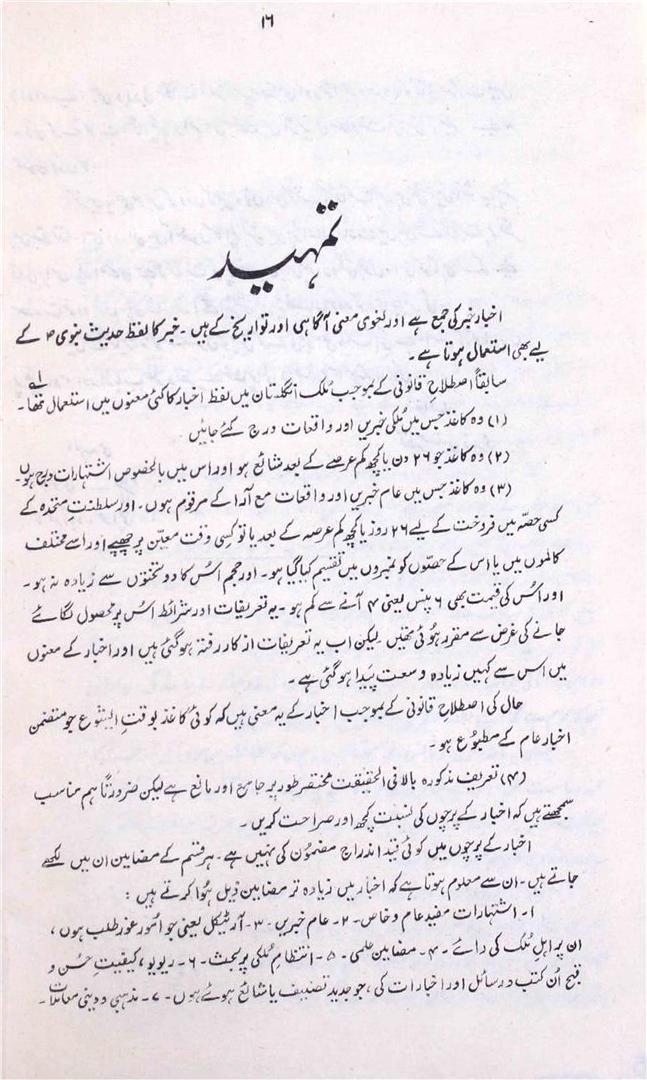 ۱۶
تمہید
اخبار خبر کی جمع ہے اور لغوی معنی آگاہی اور تواریخ کے ہیں۔ خبر کا لفظ حدیث نبوی ؐ کے
لیے بھی استعمال ہوتا ہے۔
سابقاً اصطلاح قانونی کے بموجب مُلک انگلستان میں لفظ اخبار کا کئی معنوں میں استعمال تھا۔
(۱) وہ کاغذ جس میں مُلکی خبریں اور واقعات درج کئے جائیں
(۲) وہ کاغذ جو ۲۶ دن یا کچھ کم عرصے کے بعد شائع ہو اور اس میں بالخصوص اشتہارات درج ہوں۔
(۳) وہ کاغذ جس میں عام خبریں اور واقعات مع آرا کے مرقوم ہوں۔ اور سلطنت متحدہ کے
کسی حصّہ میں فروخت کے لیے ۲۶ روز یا کچھ کم عرصہ کے بعد یا تو کسی وقت معیّن پر چھپے اور اسے مختلف
کالموں میں یا اس کے حصّوں کو نمبروں میں تقسیم کیا گیا ہو۔ اور حجم اُس کا دو تختوں سے زیادہ نہ ہو۔
اور اُس کی قیمت بھی ۶ پنس یعنی ۴ آنے سے کم ہو۔ یہ تعریفات اور شرائط اُس پر محصول لگائے
جانے کی غرض سے مقرر ہوئی تھیں لیکن اب یہ تعریفات از کار رفتہ ہو گئی ہیں اور اخبار کے معنوں
میں اس سے کہیں زیادہ وسعت پیدا ہو گئی ہے۔
حال کی اصطلاح قانونی کے بموجب اخبار کے یہ معنی ہیں کہ کوئی کاغذ بوقت الشیوع جو متضمن
اخبار عام کے مطبوع ہو۔
(۴) تعریف مذکورہ بالا فی الحقیقت مختصر طور پر جامع اور مانع ہے لیکن ضرورتاً ہم مناسب
سمجھتے ہیں کہ اخبار کے پرچوں کی نسبت کچھ اور صراحت کریں۔
اخبار کے پرچوں میں کوئی قید اندراج مضمون کی نہیں ہے۔ ہر قسم کے مضامین ان میں لکھے
جاتے ہیں۔ ان سے معلوم ہوتا ہے کہ اخبار میں زیادہ تر مضامین ذیل ہُوا کرتے ہیں :
۱۔ اشتہارات مفید عام و خاص۔ ۲۔ عام خبریں۔ ۳۔ آرٹیکل یعنی جو اُمور غور طلب ہوں،
ان پر اہل مُلک کی رائے۔ ۴۔ مضامین علمی۔ ۵۔ انتظام مُلکی پر بحث۔ ۶۔ ریویو، کیفیت حُسن و
قبح اُن کتب و رسائل اور اخبارات کی، جو جدید تصنیف یا شائع ہوئے ہوں۔ ۷۔ مذہبی و دینی معاملات۔